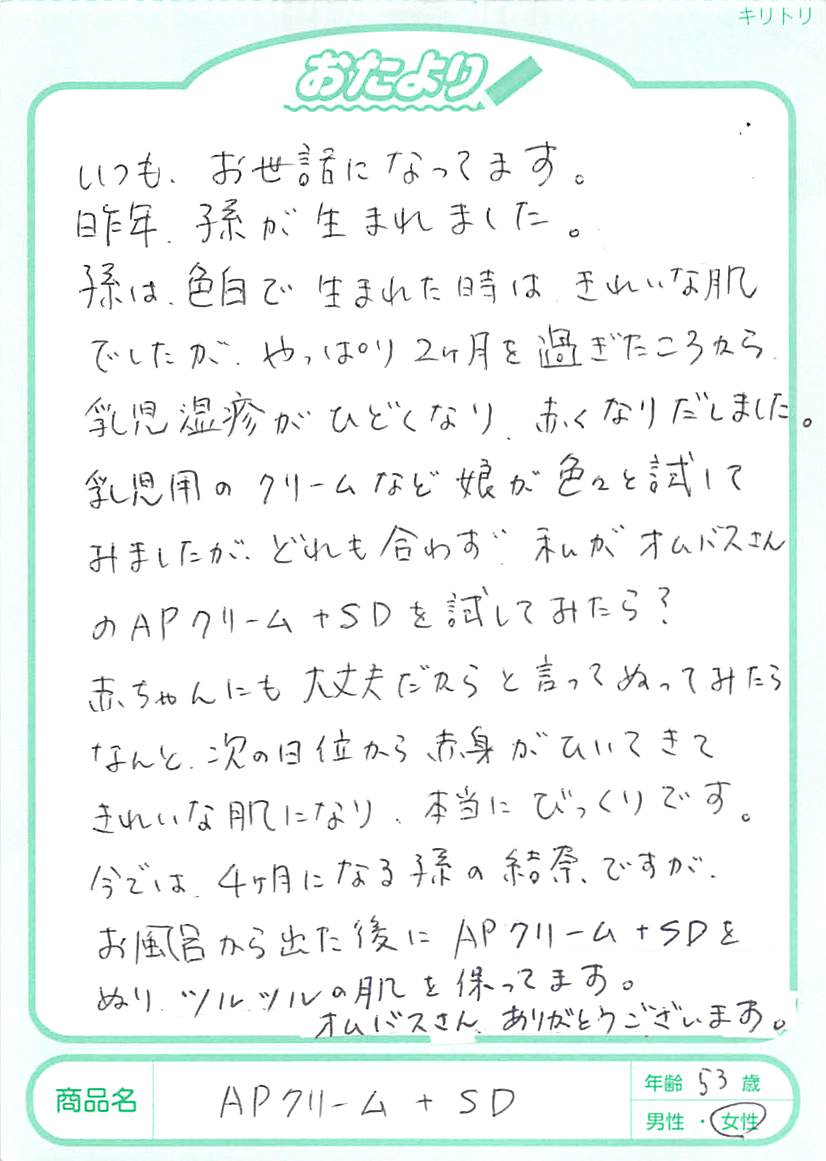 キリトリ
おたより
いつも、お世話になってます。
昨年、孫が生まれました。
孫は、色白で生まれた時は、きれいな肌
でしたが、やっぱり2ヶ月を過ぎたころから、
乳児湿疹がひどくなり、赤くなりだしました。
乳児用のクリームなど娘が色々と試して
みましたが、どれも合わず、私がオムバスさん
のAPクリーム+SDを試してみたら?
赤ちゃんにも大丈夫だからと言ってぬってみたら
なんと、次の日位から赤身がひいてきて
きれいな肌になり、本当にびっくりです。
今では、4ヶ月になる孫の結奈、ですが、
お風呂から出た後にAPクリーム+SDを
ぬり、ツルツルの肌を保ってます。
オムバスさん、ありがとうございます。
商品名 APクリーム + SD
年齢 53 歳
男性・女性